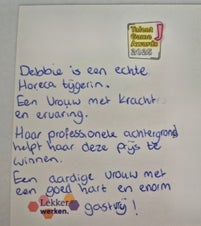 Talent
Game
Awards
2025
Debbie is een echte
Horeca tijgerin.
Een vrouw met kracht
en ervaring.
Haar professionele achtergrond
helpt haar deze prijs te
winnen.
Een aardige vrouw met
een goed hart en enorm
gastvrij!
Lekker
werken.